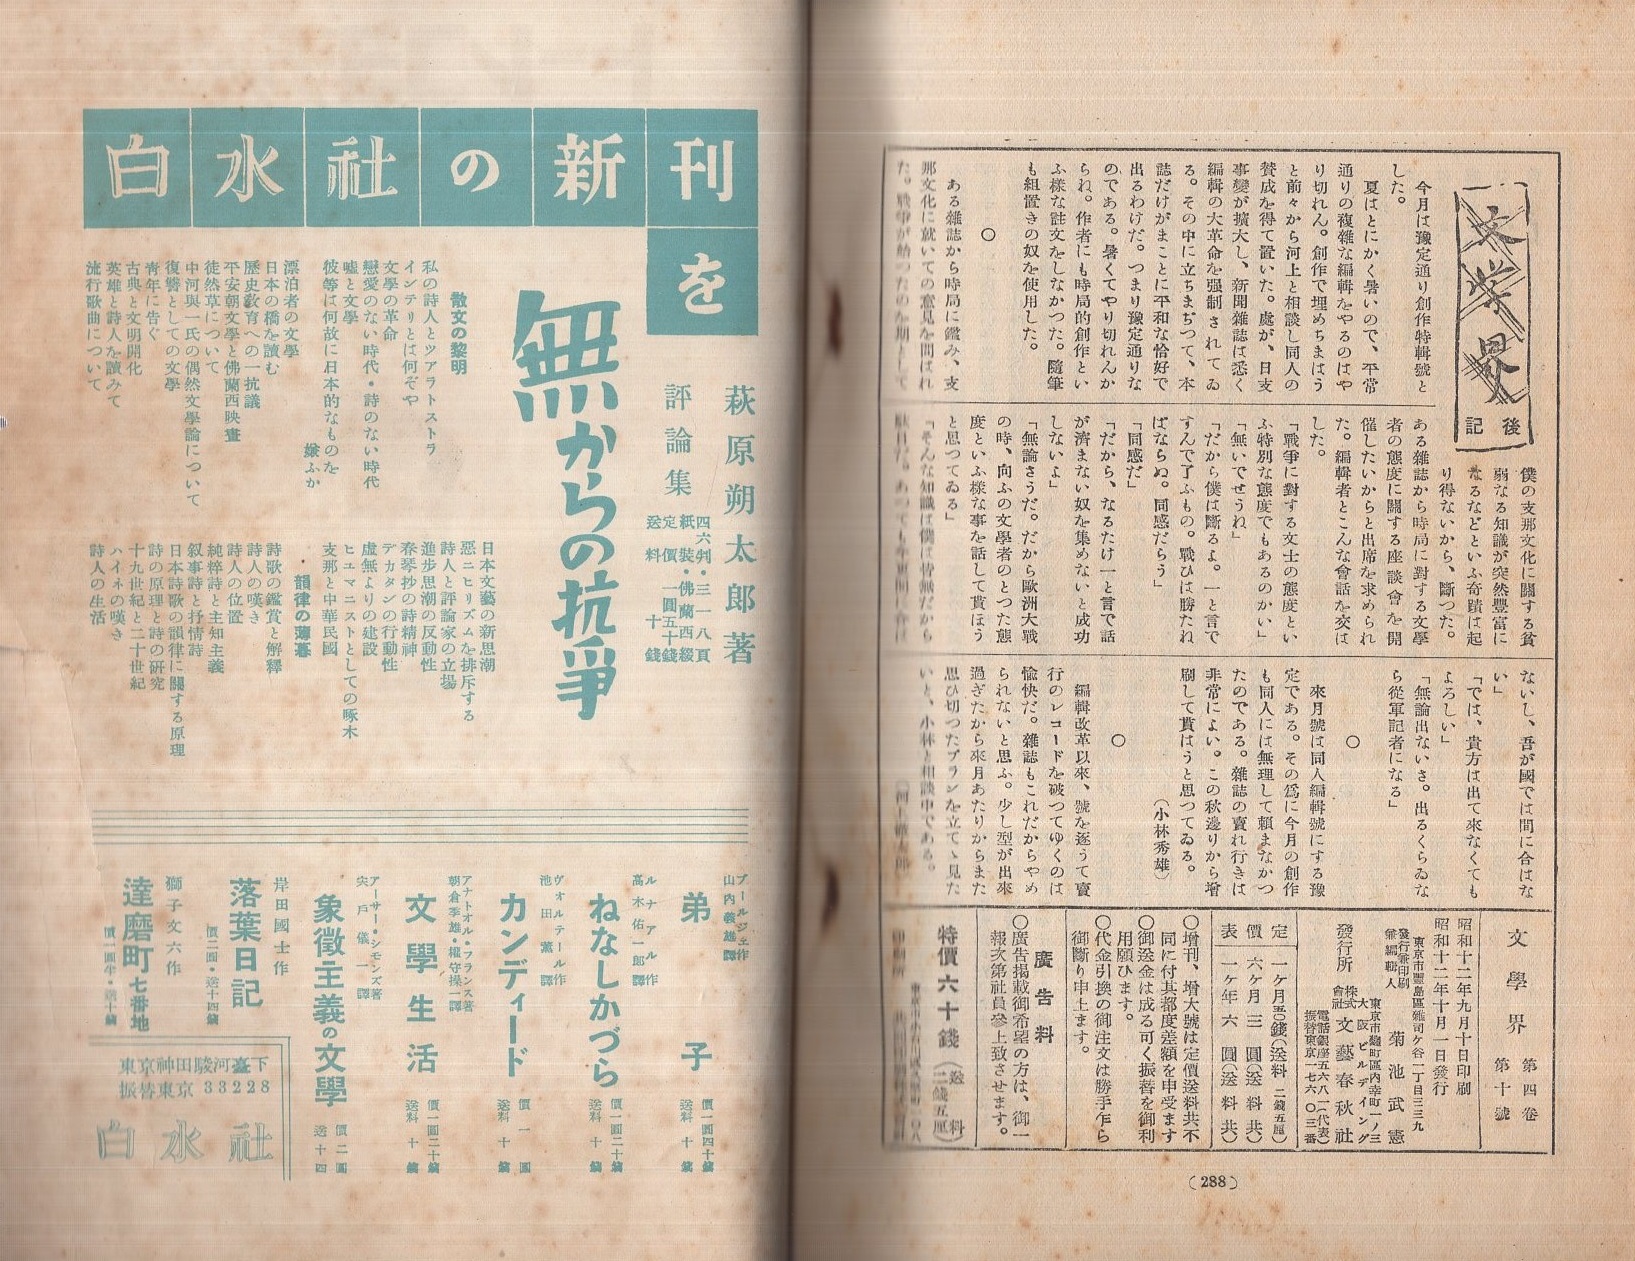 文學界
後記
今月は豫定通り創作特輯號と
した。
夏はとにかく暑いので、平常
通りの複雜な編輯をやるのはや
り切れん。創作で埋めちまはう
と前々から河上と相談し同人の
賛成を得て置いた。處が、日支
事變が擴大し、新聞雜誌は悉く
編輯の大革命を强制されてゐ
る。その中に立ちまぢつて、本
誌だけがまことに平和な恰好で
出るわけだ。つまり豫定通りな
のである。暑くてやり切れんか
らね。作者にも時局的創作とい
ふ樣な註文をしなかつた。隨筆
も組置きの奴を使用した。
○
ある雜誌から時局に鑑み、支
那文化に就いての意見を問はれ
た。戰爭が始つたのを期として
僕の支那文化に關する貧
弱なる知識が突然豐富に
なるなどといふ奇蹟は起
り得ないから、斷つた。
ある雜誌から時局に對する文學
者の態度に關する座談會を開
催したいからと出席を求められ
た。編輯者とこんな會話を交は
した。
「戰爭に對する文士の態度とい
ふ特別な態度でもあるのかい」
「無いでせうね」
「だから僕は斷るよ。一と言で
すんで了ふもの。戰ひは勝たね
ばならぬ。同感だらう」
「同感だ」
「だから、なるたけ一と言で話
が濟まない奴を集めないと成功
しないよ」
「無論さうだ。だから歐洲大戰
の時、向ふの文學者のとつた態
度といふ樣な事を話して貰はう
と思つてゐる」
「そんな知識は僕には皆無だから
ないし、吾が國では間に合はな
い」
「では、貴方は出て來なくても
よろしい」
「無論出ないさ。出るくらゐな
ら從軍記者になる」
○
來月號は同人編輯號にする豫
定である。その爲に今月の創作
も同人には無理して賴まなかつ
たのである。雜誌の賣れ行きは
非常によい。この秋邊りから增
刷して貰はうと思つてゐる。
（小林秀雄）
○
編輯改革以來、號を逐うて賣
行のレコードを破つてゆくのは
愉快だ。雜誌もこれだからやめ
られないと思ふ。少し型が出來
過ぎたから來月あたりからまた
思ひ切つたプランを立てゝ見た
いと、小林と相談中である。
文學界 第四卷 第十號
昭和十二年九月十日印刷
昭和十二年十月一日發行
東京市豐島區雜司ケ谷二丁目三三九
發行兼印刷兼編輯人 菊池武憲
東京市麴町區內幸町一ノ三
大阪ビルデイング
發行所 株式會社 文藝春秋社
電話銀座五六八一(代表)
振替東京一七六〇三番
定價表
一ケ月五〇錢(送料 二錢五厘)
六ケ月三圓(送料共)
一ケ年六圓(送料共)
○增刊、增大號は定價送料共不
同に付其都度差額を申受ます
○御送金は成る可く振替を御利
用願ひます。
○代金引換の御注文は勝手乍ら
御斷り申上ます。
廣告料
○廣告揭載御希望の方は、御一
報次第社員參上致させます。
特價六十錢(送料二錢五厘)
(288)
白水社の新刊を
萩原朔太郞著
評論集
無からの抗爭
四六判・三一八頁
紙裝・佛蘭西綴
定價 一圓五十錢
送料 十錢
散文の黎明
私の詩人とツアラトストラ
インテリとは何ぞや
文學の革命
戀愛のない時代・詩のない時代
嘘と文學
彼等は何故に日本的なものを
嫌ふか
漂泊者の文學
日本の橋を讀む
歷史敎育への一抗議
平安朝文學と佛蘭西映畫
徒然草について
中河與一氏の偶然文學論について
復讐としての文學
靑年に吿ぐ
古典と文明開化
英雄と詩人を讀みて
流行歌曲について
日本文藝の新思潮
惡ニヒリズムを排斥する
詩人と評論家の立場
進步思潮の反動性
春琴抄の詩精神
デカタンの行動性
虛無よりの建設
ヒユマニストとしての啄木
支那と中華民國
韻律の薄暮
詩歌の鑑賞と解釋
詩人の嘆き
詩人の位置
純粹詩と主知主義
敍事詩と抒情詩
日本詩歌の韻律に關する原理
詩の原理と詩の硏究
十九世紀と二十世紀
ハイネの嘆き
詩人の生活
ブールジェ作
山內義雄譯
弟子
價一圓四十錢
送料十錢
ルナアル作
高木佑一郞譯
ねなしかづら
價一圓二十錢
送料十錢
ヴォルテール作
池田薰譯
カンディード
價一圓
送料十錢
アナトオル・フランス著
朝倉季雄・權守操一譯
文學生活
價一圓二十錢
送料十錢
アーサー・シモンズ著
宍戶儀一譯
象徵主義の文學
價二圓
送十四
岸田國士作
落葉日記
價二圓・送十四錢
獅子文六作
達磨町七番地
價一圓半・送十錢
東京神田駿河臺下
振替東京33228
白水社